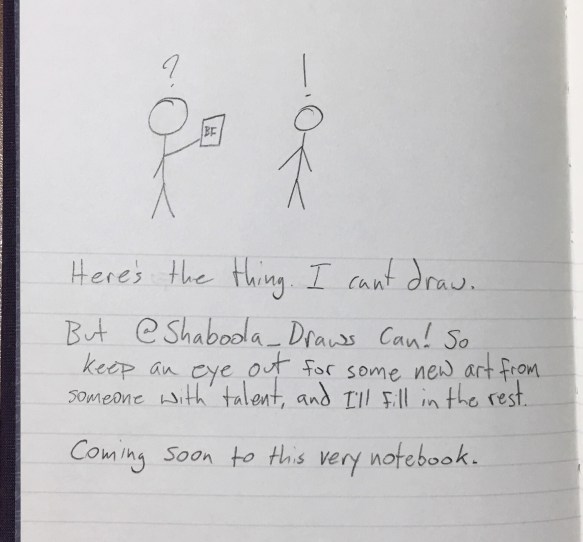 ?
!
BF
Here's the thing. I cant draw.
But @Shaboola_Draws Can! So
keep an eye out for some new art from
someone with talent, and I'll fill in the rest.
Coming soon to this very notebook.